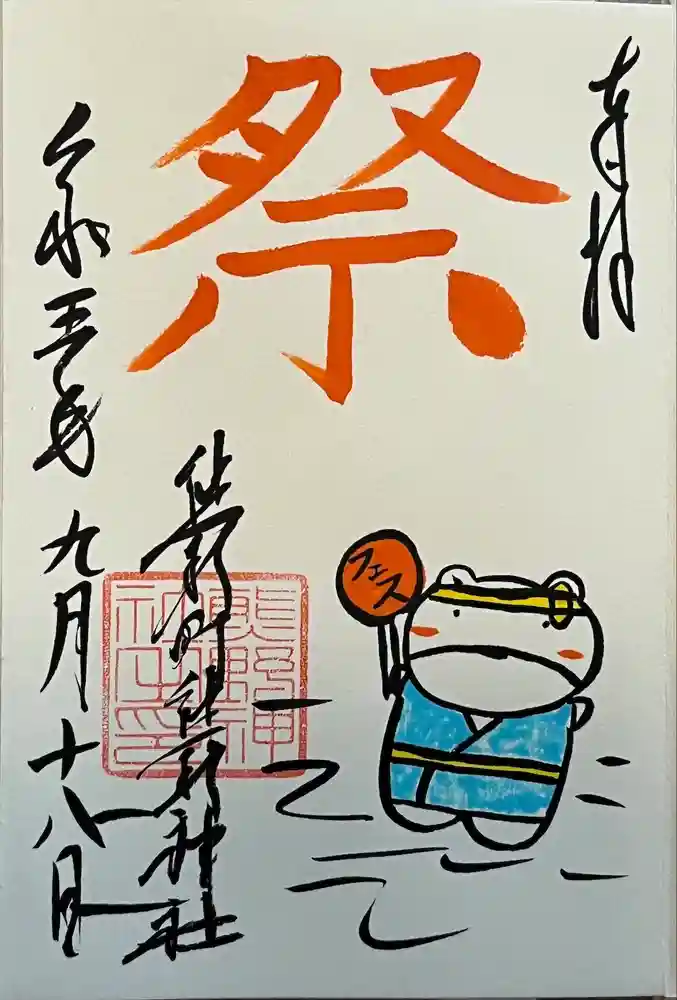 奉拝
祭
フェス
熊野町熊野神社
熊野神
社之印
令和五年九月十八日